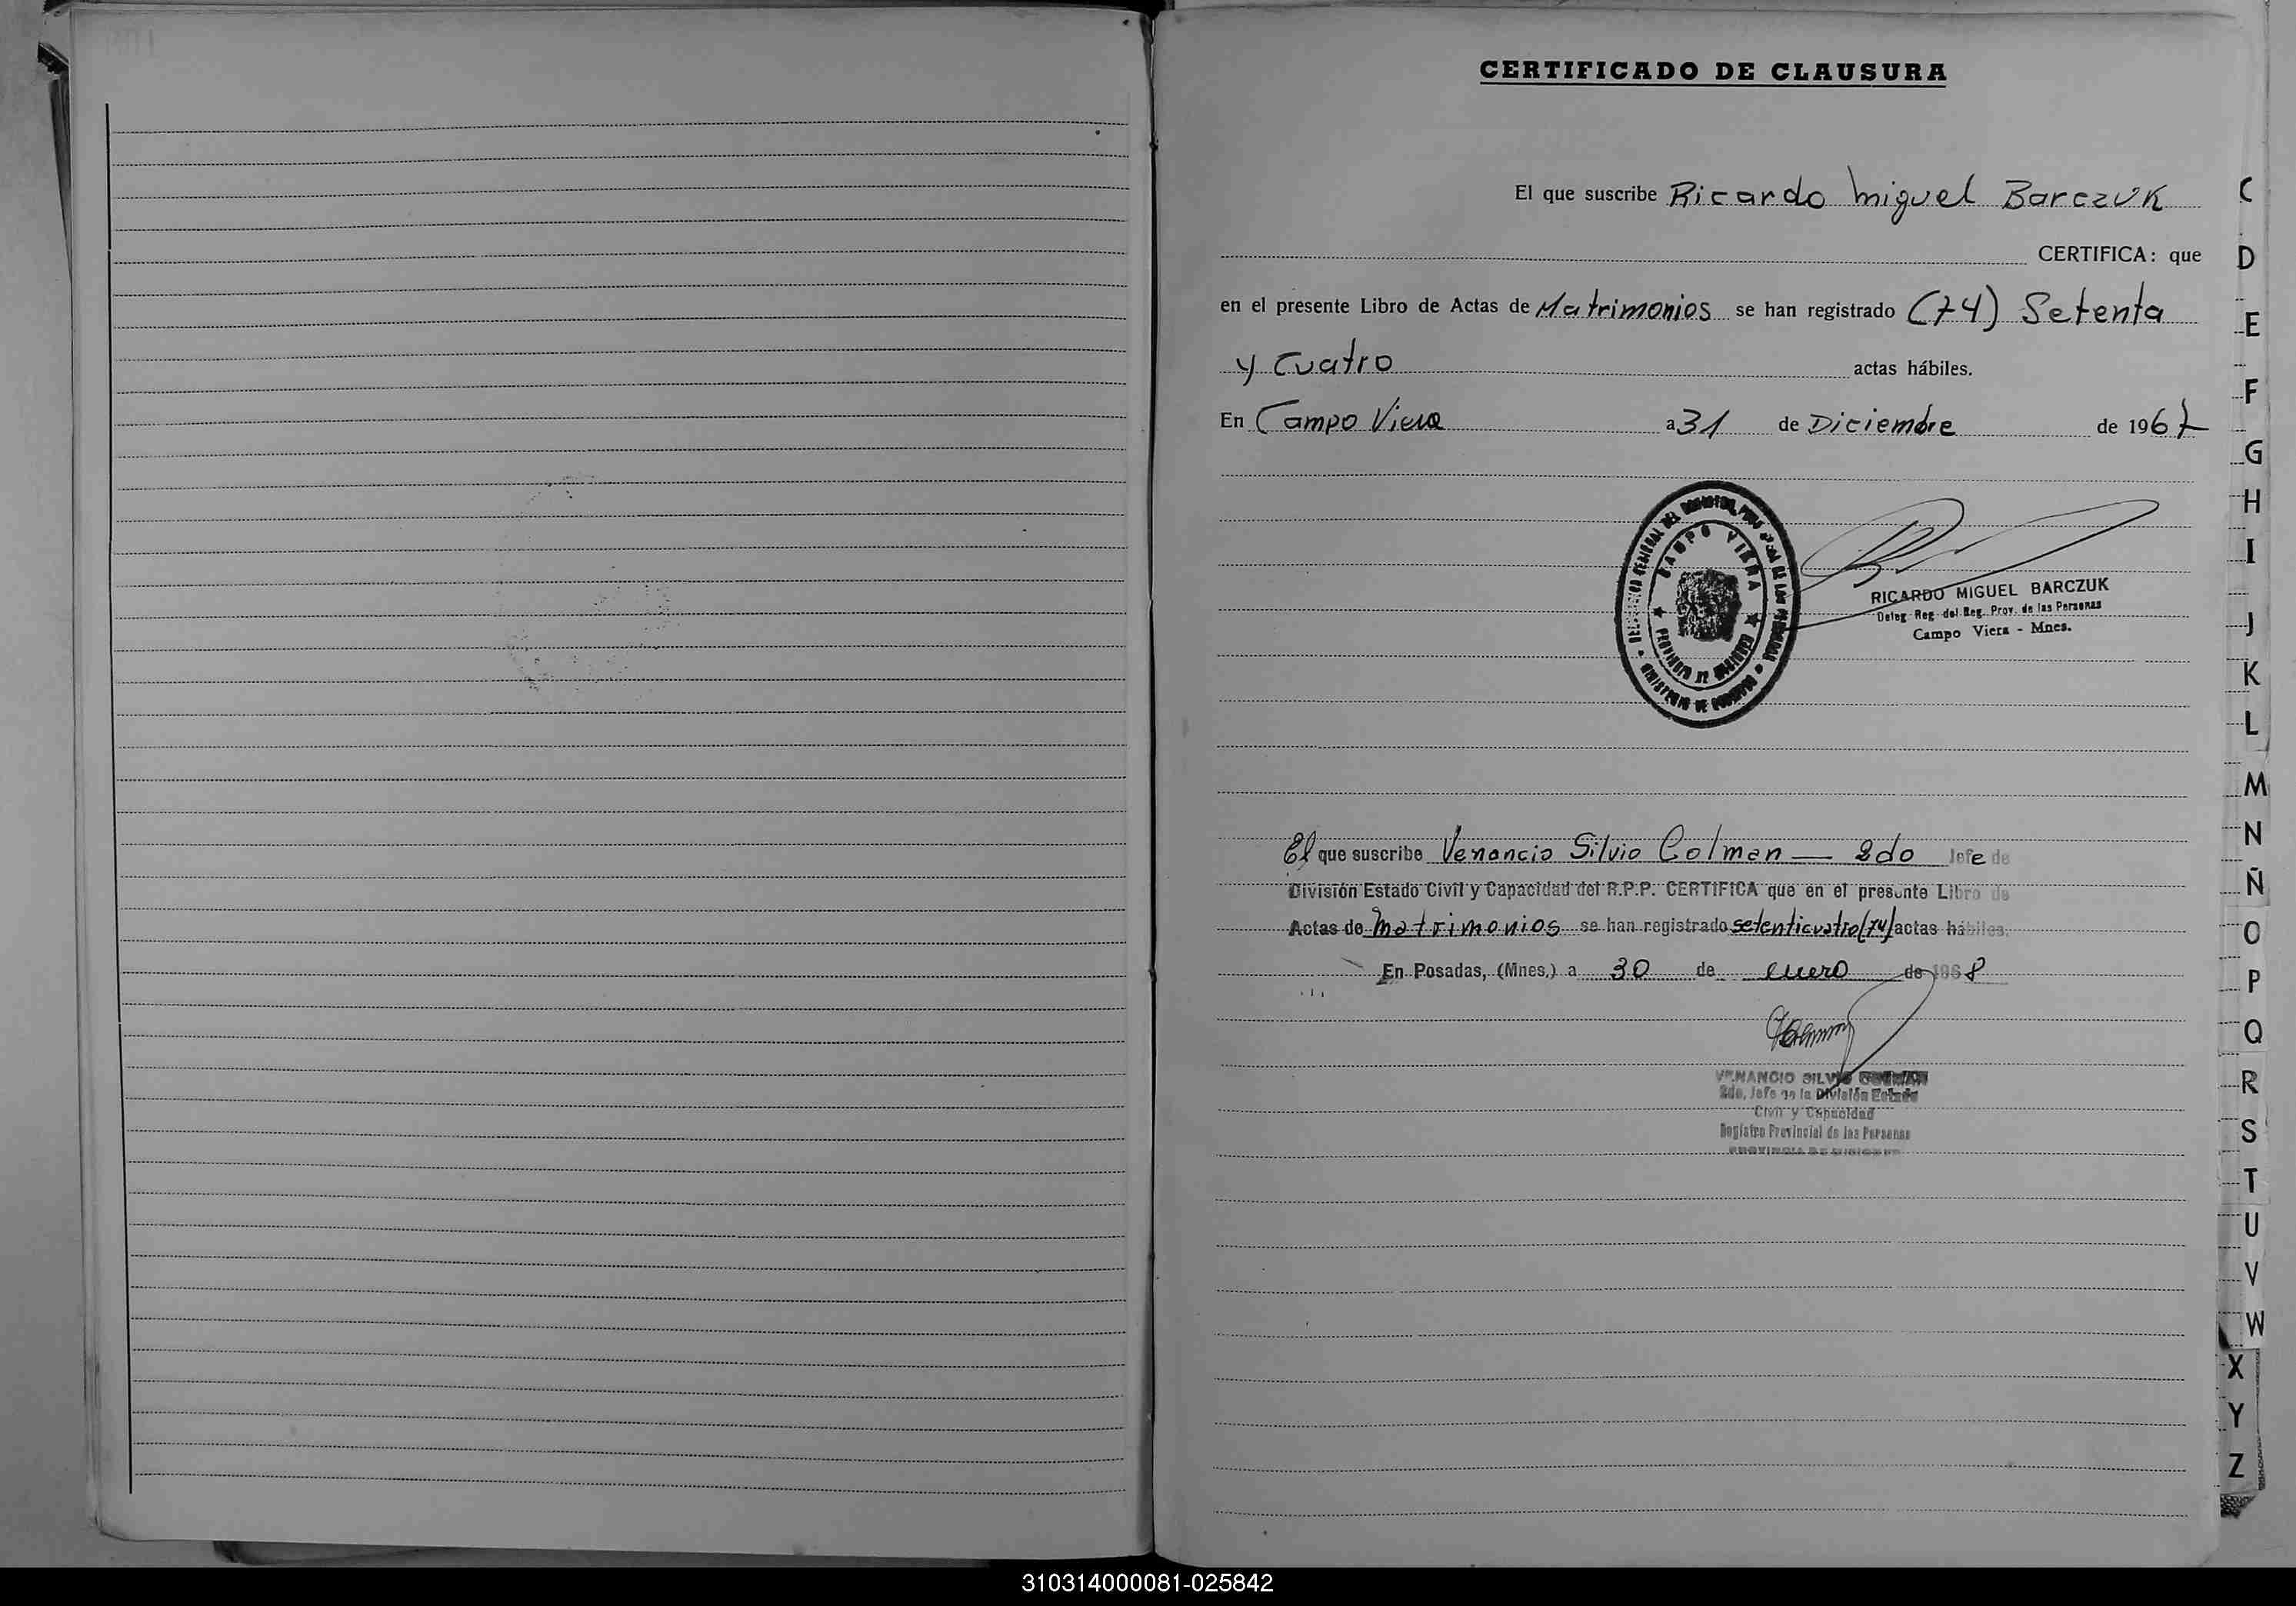 CERTIFICADO DE CLAUSURA
El que suscribe Ricardo Miguel Barczuk
CERTIFICA: que
en el presente Libro de Actas de Matrimonios se han registrado (74) Setenta
y Cuatro actas hábiles.
En Campo Viera a 31 de Diciembre de 1967
CAMPO VIERA
PROVINCIA DE MISIONES
MINISTERIO DE GOBIERNO
RICARDO MIGUEL BARCZUK
Deleg. Reg. del Reg. Prov. de las Personas
Campo Viera - Mnes.
El que suscribe Venancio Silvio Colman — 2do Jefe de
División Estado Civil y Capacidad del R.P.P. CERTIFICA que en el presente Libro de
Actas de Matrimonios se han registrado setenticuatro (74) actas hábiles.
En Posadas, (Mnes.) a 30 de enero de 1968
VENANCIO SILVIO COLMAN
2do. Jefe de la División Estado
Civil y Capacidad
Registro Provincial de las Personas
PROVINCIA DE MISIONES
C
D
E
F
G
H
I
J
K
L
M
N
Ñ
O
P
Q
R
S
T
U
V
W
X
Y
Z
310314000081-025842